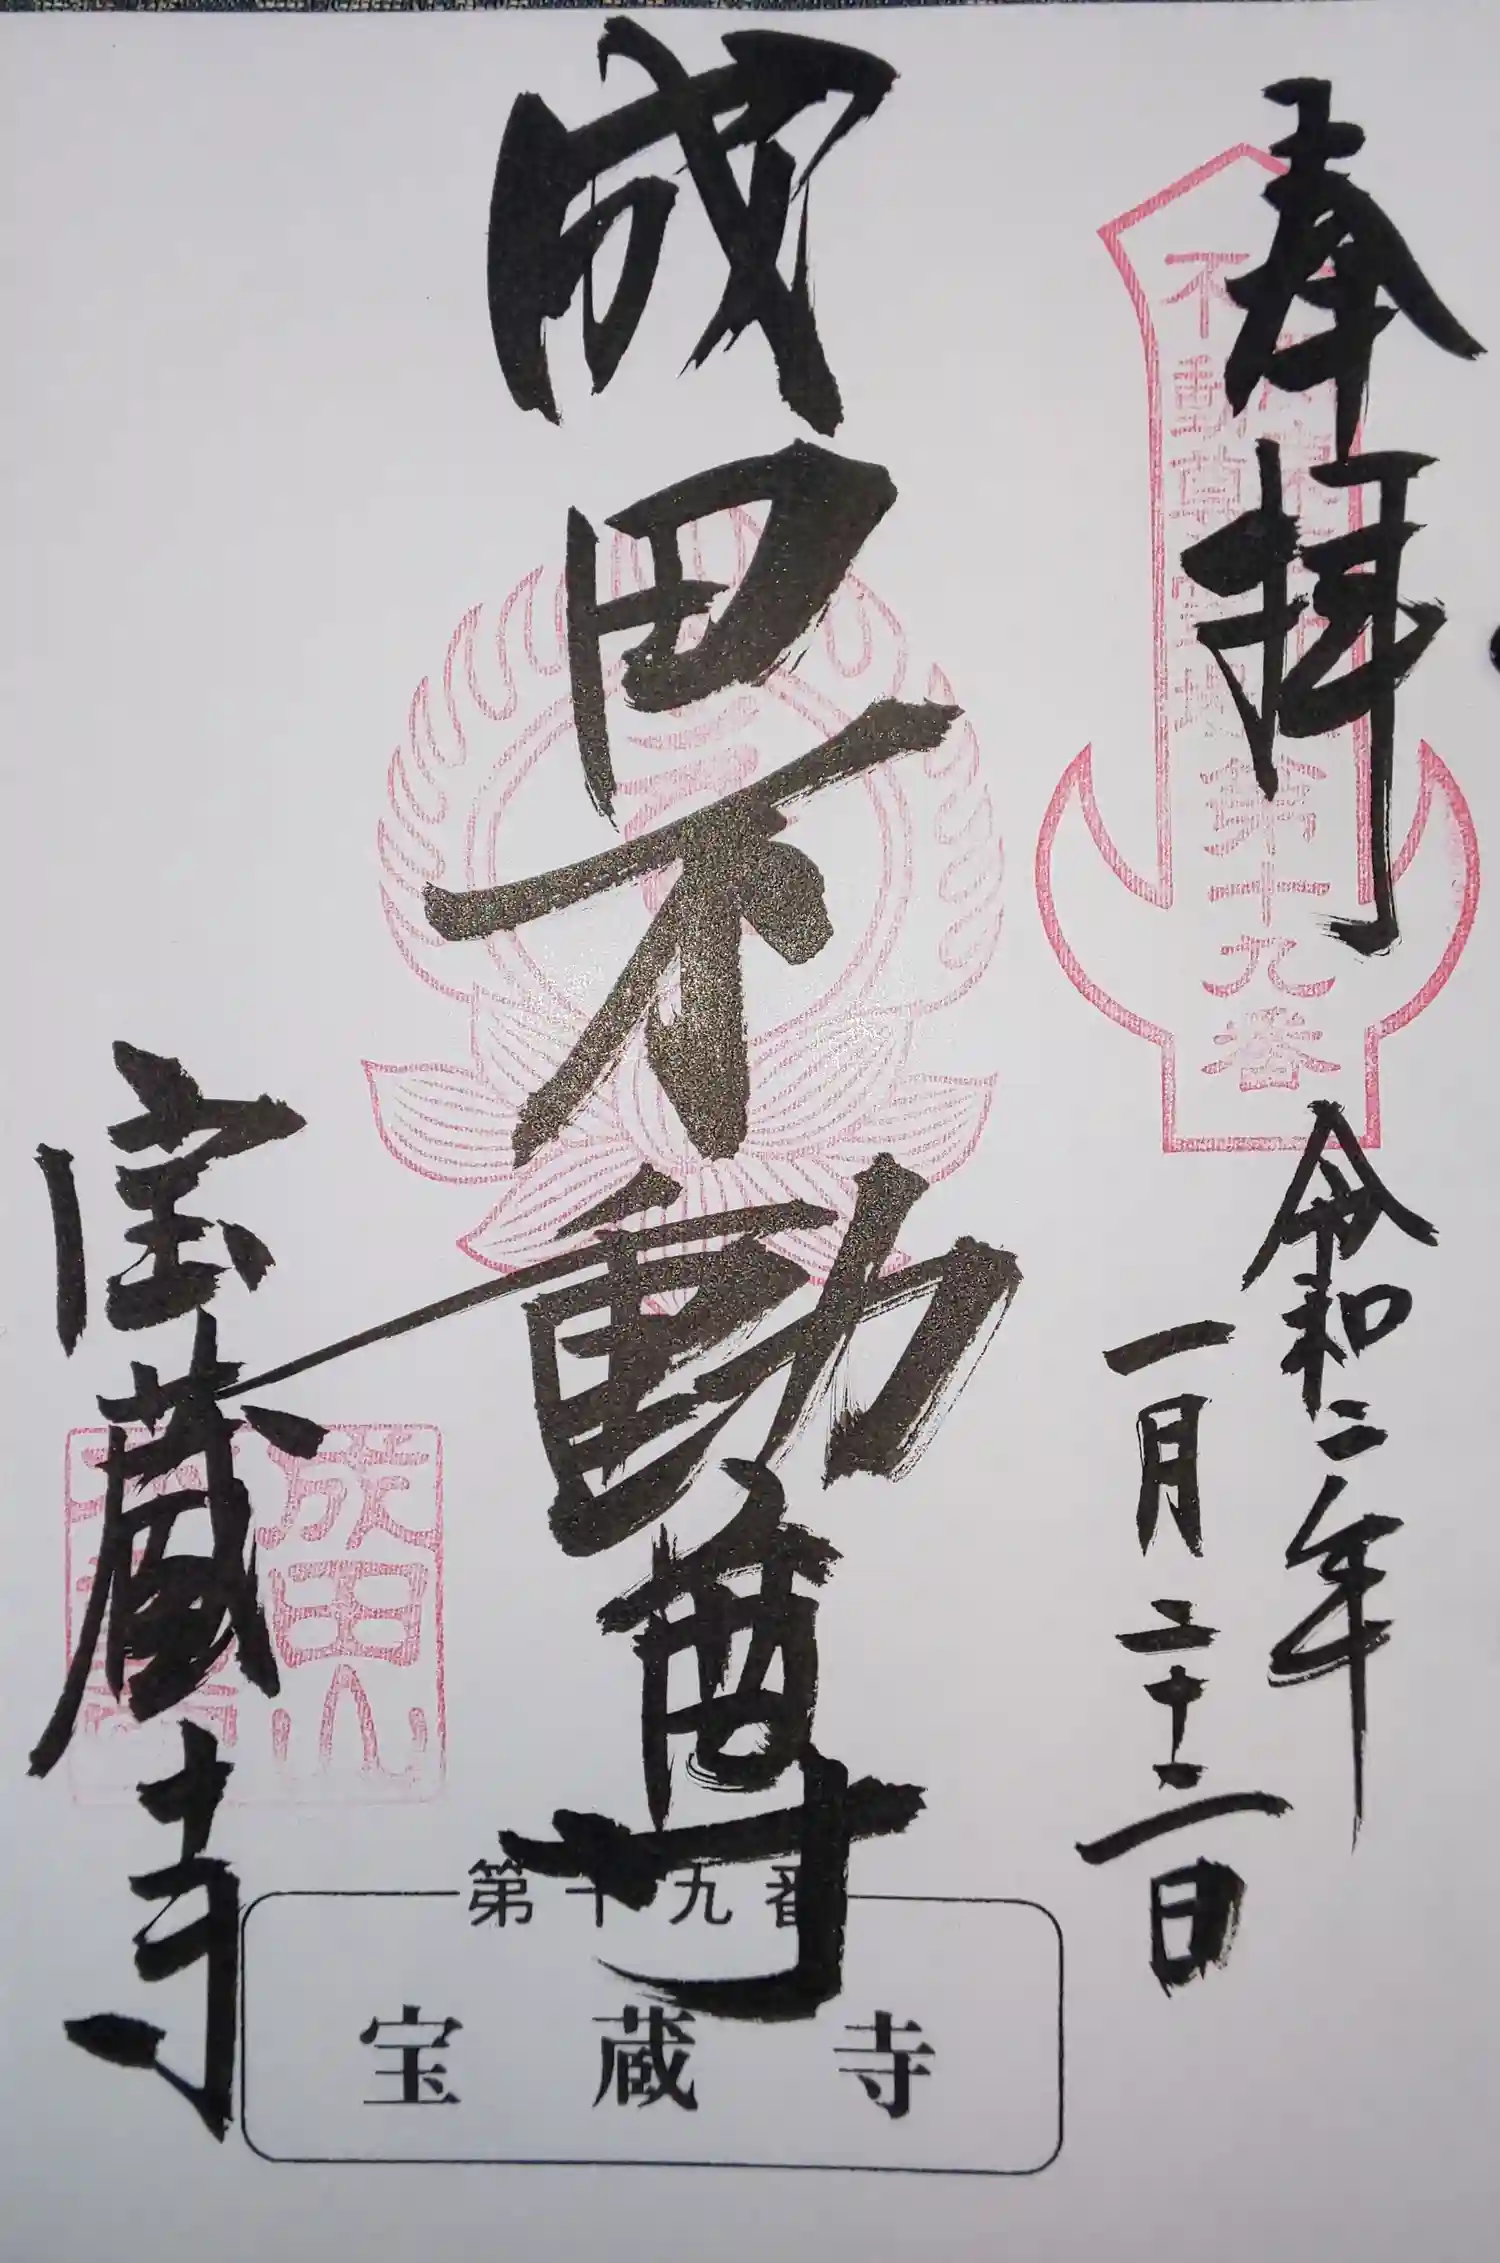 奉拝
令和二年
一月二十二日
第十九番
成田不動尊
宝蔵寺
成田山
第十九番
宝蔵寺